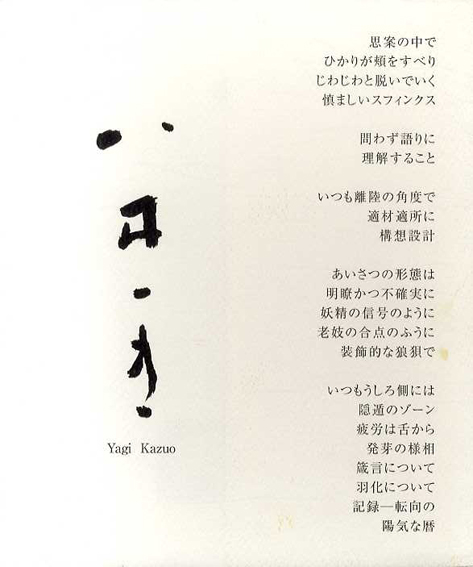 思案の中で
ひかりが頬をすべり
じわじわと脱いでいく
慎ましいスフィンクス
問わず語りに
理解すること
いつも離陸の角度で
適材適所に
構想設計
あいさつの形態は
明瞭かつ不確実に
妖精の信号のように
老妓の合点のふうに
装飾的な狼狽で
いつもうしろ側には
隠遁のゾーン
疲労は舌から
発芽の様相
箴言について
羽化について
記録—転向の
陽気な暦
八木一夫
Yagi Kazuo